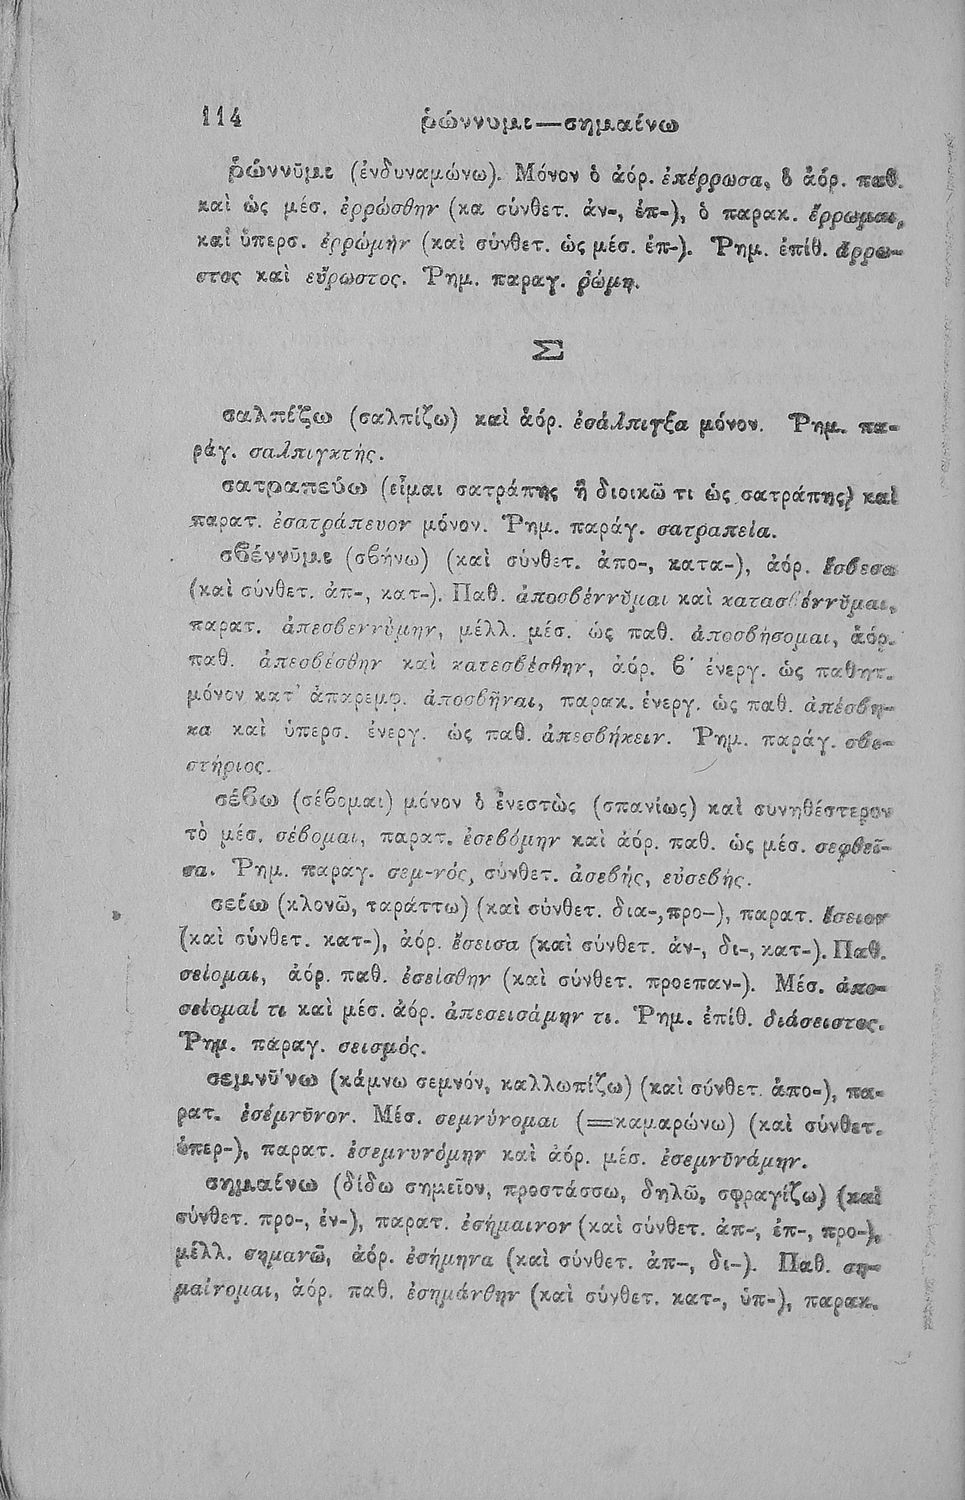 114 ῥώννυμι—σημαίνω
ῥώννῡμι (ἐνδυναμώνω). Μόνον ὁ ἀόρ. ἐπέρρωσα, ὁ ἀόρ. παθ.
καὶ ὡς μέσ. ἐρρώσθην (κα σύνθετ. ἀν-, ἐπ-), ὁ παρακ. ἔρρωμαι,
καὶ ὑπερσ. ἐρρώμην (καὶ σύνθετ. ὡς μέσ. ἐπ-). Ῥημ. ἐπίθ. ἄρρω-
στος καὶ εὔρωστος. Ῥημ. παραγ. ῥώμη.
Σ
σαλπίζω (σαλπίζω) καὶ ἀόρ. ἐσάλπιγξα μόνον. Ῥημ. πα-
ράγ. σαλπιγκτής.
σατραπεύω (εἶμαι σατράπης ἢ διοικῶ τι ὡς σατράπης) καὶ
παρατ. ἐσατράπευον μόνον. Ῥημ. παράγ. σατραπεία.
σβέννῡμι (σβήνω) (καὶ σύνθετ. ἀπο-, κατα-), ἀόρ. ἔσβεσα
(καὶ σύνθετ. ἀπ-, κατ-). Παθ. ἀποσβέννῡμαι καὶ κατασβέννῡμαι,
παρατ. ἀπεσβεννύμην, μέλλ. μέσ. ὡς παθ. ἀποσβήσομαι, ἀόρ.
παθ. ἀπεσβέσθην καὶ κατεσβέσθην, ἀόρ. β΄ ἐνεργ. ὡς παθητ.
μόνον κατ' ἀπαρεμφ. ἀποσβῆναι, παρακ. ἐνεργ. ὡς παθ. ἀπέσβη-
κα καὶ ὑπερσ. ἐνεργ. ὡς παθ. ἀπεσβήκειν. Ῥημ. παράγ. σβε-
στήριος.
σέβω (σέβομαι) μόνον ὁ ἐνεστὼς (σπανίως) καὶ συνηθέστερον
τὸ μέσ. σέβομαι, παρατ. ἐσεβόμην καὶ ἀόρ. παθ. ὡς μέσ. σεφθεῖ-
σα. Ῥημ. παραγ. σεμ-νός, σύνθετ. ἀσεβής, εὐσεβής.
σείω (κλονῶ, ταράττω) (καὶ σύνθετ. δια-, προ-), παρατ. ἔσειον
(καὶ σύνθετ. κατ-), ἀόρ. ἔσεισα (καὶ σύνθετ. ἀν-, δι-, κατ-). Παθ.
σείομαι, ἀόρ. παθ. ἐσείσθην (καὶ σύνθετ. προεπαν-). Μέσ. ἀπο-
σείομαί τι καὶ μέσ. ἀόρ. ἀπεσεισάμην τι. Ῥημ. ἐπίθ. διάσειστος.
Ῥημ. πάραγ. σεισμός.
σεμνῡ́νω (κάμνω σεμνόν, καλλωπίζω) (καὶ σύνθετ. ἀπο-), πα-
ρατ. ἐσέμνῡνον. Μέσ. σεμνύνομαι (=καμαρώνω) (καὶ σύνθετ.
ὑπερ-), παρατ. ἐσεμνυνόμην καὶ ἀόρ. μέσ. ἐσεμνῡνάμην.
σημαίνω (δίδω σημεῖον, προστάσσω, δηλῶ, σφραγίζω) (καὶ
σύνθετ. προ-, ἐν-), παρατ. ἐσήμαινον (καὶ σύνθετ. ἀπ-, ἐπ-, προ-),
μέλλ. σημανῶ, ἀόρ. ἐσήμηνα (καὶ σύνθετ. ἀπ-, δι-). Παθ. ση-
μαίνομαι, ἀόρ. παθ. ἐσημάνθην (καὶ σύνθετ. κατ-, ὑπ-), παρακ.